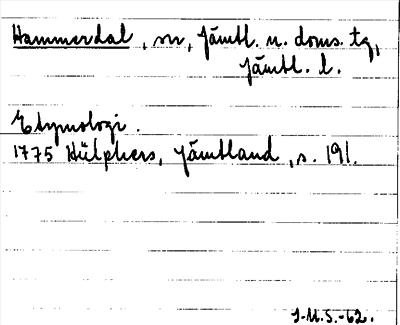 Hammerdal, sn, Jämtl. n. doms. tg,
Jämtl. l.
Etymologi.
1775 Hülphers, Jämtland, s. 191.
J-M.S.-62.